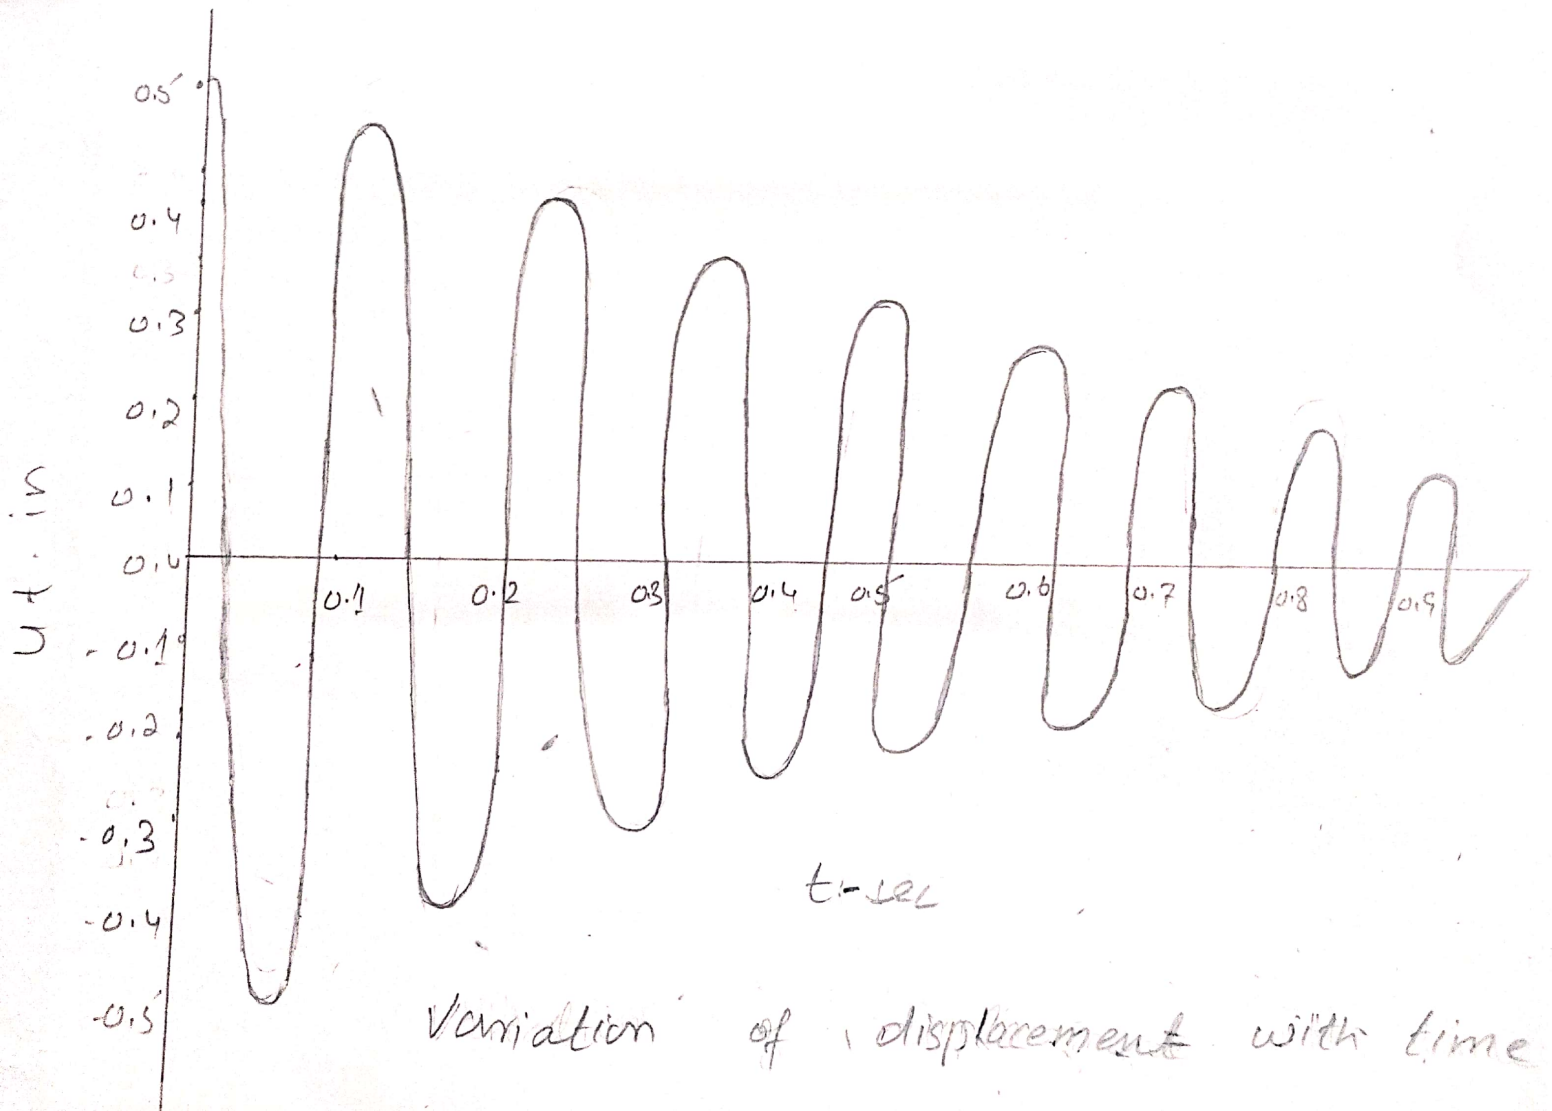 0.5
0.4
0.3
0.3
0.2
0.1
0.0
-0.1
-0.2
-0.3
-0.4
-0.5
ut.in
0.1 0.2 0.3 0.4 0.5 0.6 0.7 0.8 0.9
t-sec
Variation of displacement with time